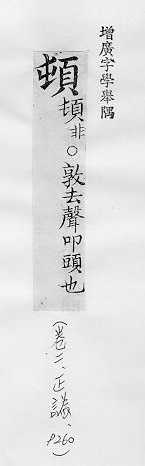 增廣字學舉隅
頓
頓非○敦去聲叩頭也
(卷二、正譌、P260)